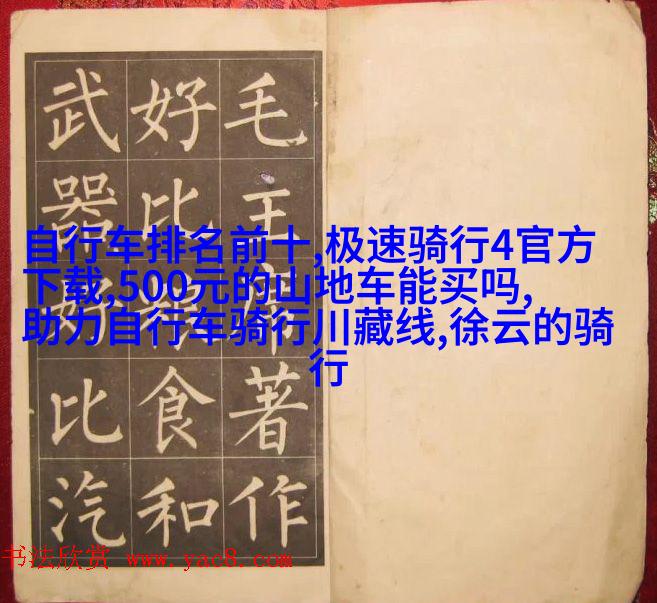 毛主席著作
好比粮食和
武器好比汽
自行车排名前十,极速骑行4官方
下载,500元的山地车能买吗,
助力自行车骑行川藏线,徐云的骑
行
书法欣赏 www.yac8.com